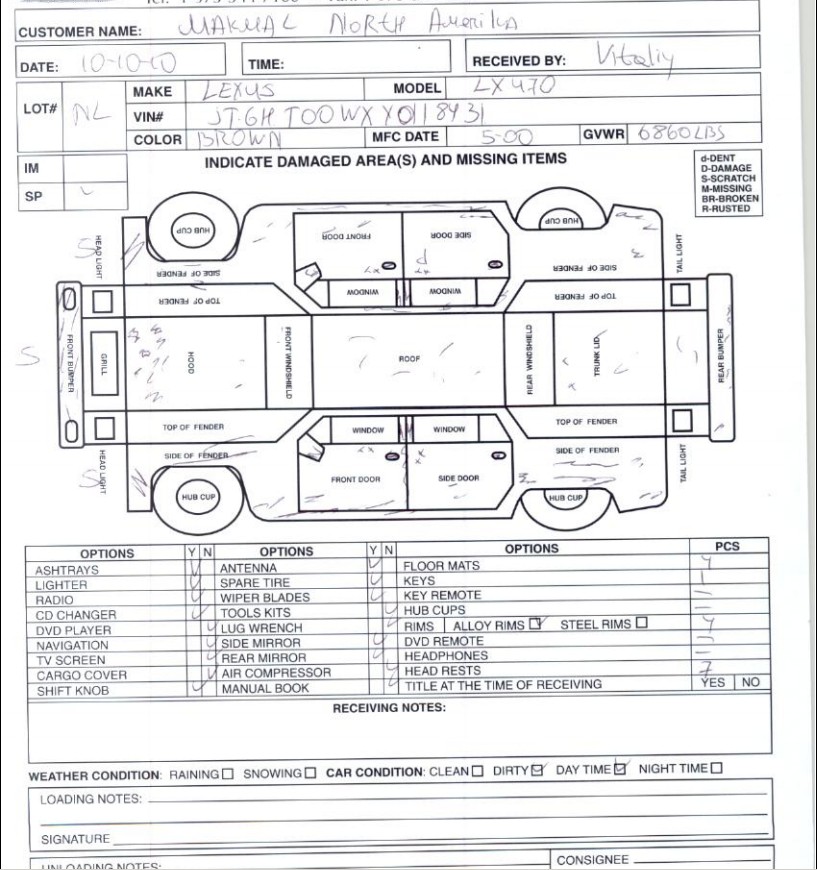 CUSTOMER NAME: MAKMAL North Amerika
DATE: 10-10-10 TIME: RECEIVED BY: Vitaliy
LOT# NL MAKE LEXUS MODEL LX 470
VIN# JT6HT00WXY0118431
COLOR BROWN MFC DATE 5-00 GVWR 6860 LBS
IM
SP
INDICATE DAMAGED AREA(S) AND MISSING ITEMS
d-DENT
D-DAMAGE
S-SCRATCH
M-MISSING
BR-BROKEN
R-RUSTED
HUB CUP
FRONT DOOR
SIDE DOOR
HUB CUP
S
HEAD LIGHT
SIDE OF FENDER
d
SIDE OF FENDER
TAIL LIGHT
TOP OF FENDER
WINDOW
WINDOW
TOP OF FENDER
S
FRONT BUMPER
GRILL
HOOD
FRONT WINDSHIELD
ROOF
REAR WINDSHIELD
TRUNK LID
REAR BUMPER
TOP OF FENDER
WINDOW
WINDOW
TOP OF FENDER
S
HEAD LIGHT
SIDE OF FENDER
FRONT DOOR
SIDE DOOR
SIDE OF FENDER
TAIL LIGHT
HUB CUP
HUB CUP
OPTIONS Y N OPTIONS Y N OPTIONS PCS
ASHTRAYS ANTENNA FLOOR MATS 4
LIGHTER SPARE TIRE KEYS 1
RADIO WIPER BLADES KEY REMOTE –
CD CHANGER TOOLS KITS HUB CUPS –
DVD PLAYER LUG WRENCH RIMS ALLOY RIMS STEEL RIMS 4
NAVIGATION SIDE MIRROR DVD REMOTE –
TV SCREEN REAR MIRROR HEADPHONES –
CARGO COVER AIR COMPRESSOR HEAD RESTS 7
SHIFT KNOB MANUAL BOOK TITLE AT THE TIME OF RECEIVING YES NO
RECEIVING NOTES:
WEATHER CONDITION: RAINING SNOWING CAR CONDITION: CLEAN DIRTY DAY TIME NIGHT TIME
LOADING NOTES:
SIGNATURE
UNLOADING NOTES: CONSIGNEE